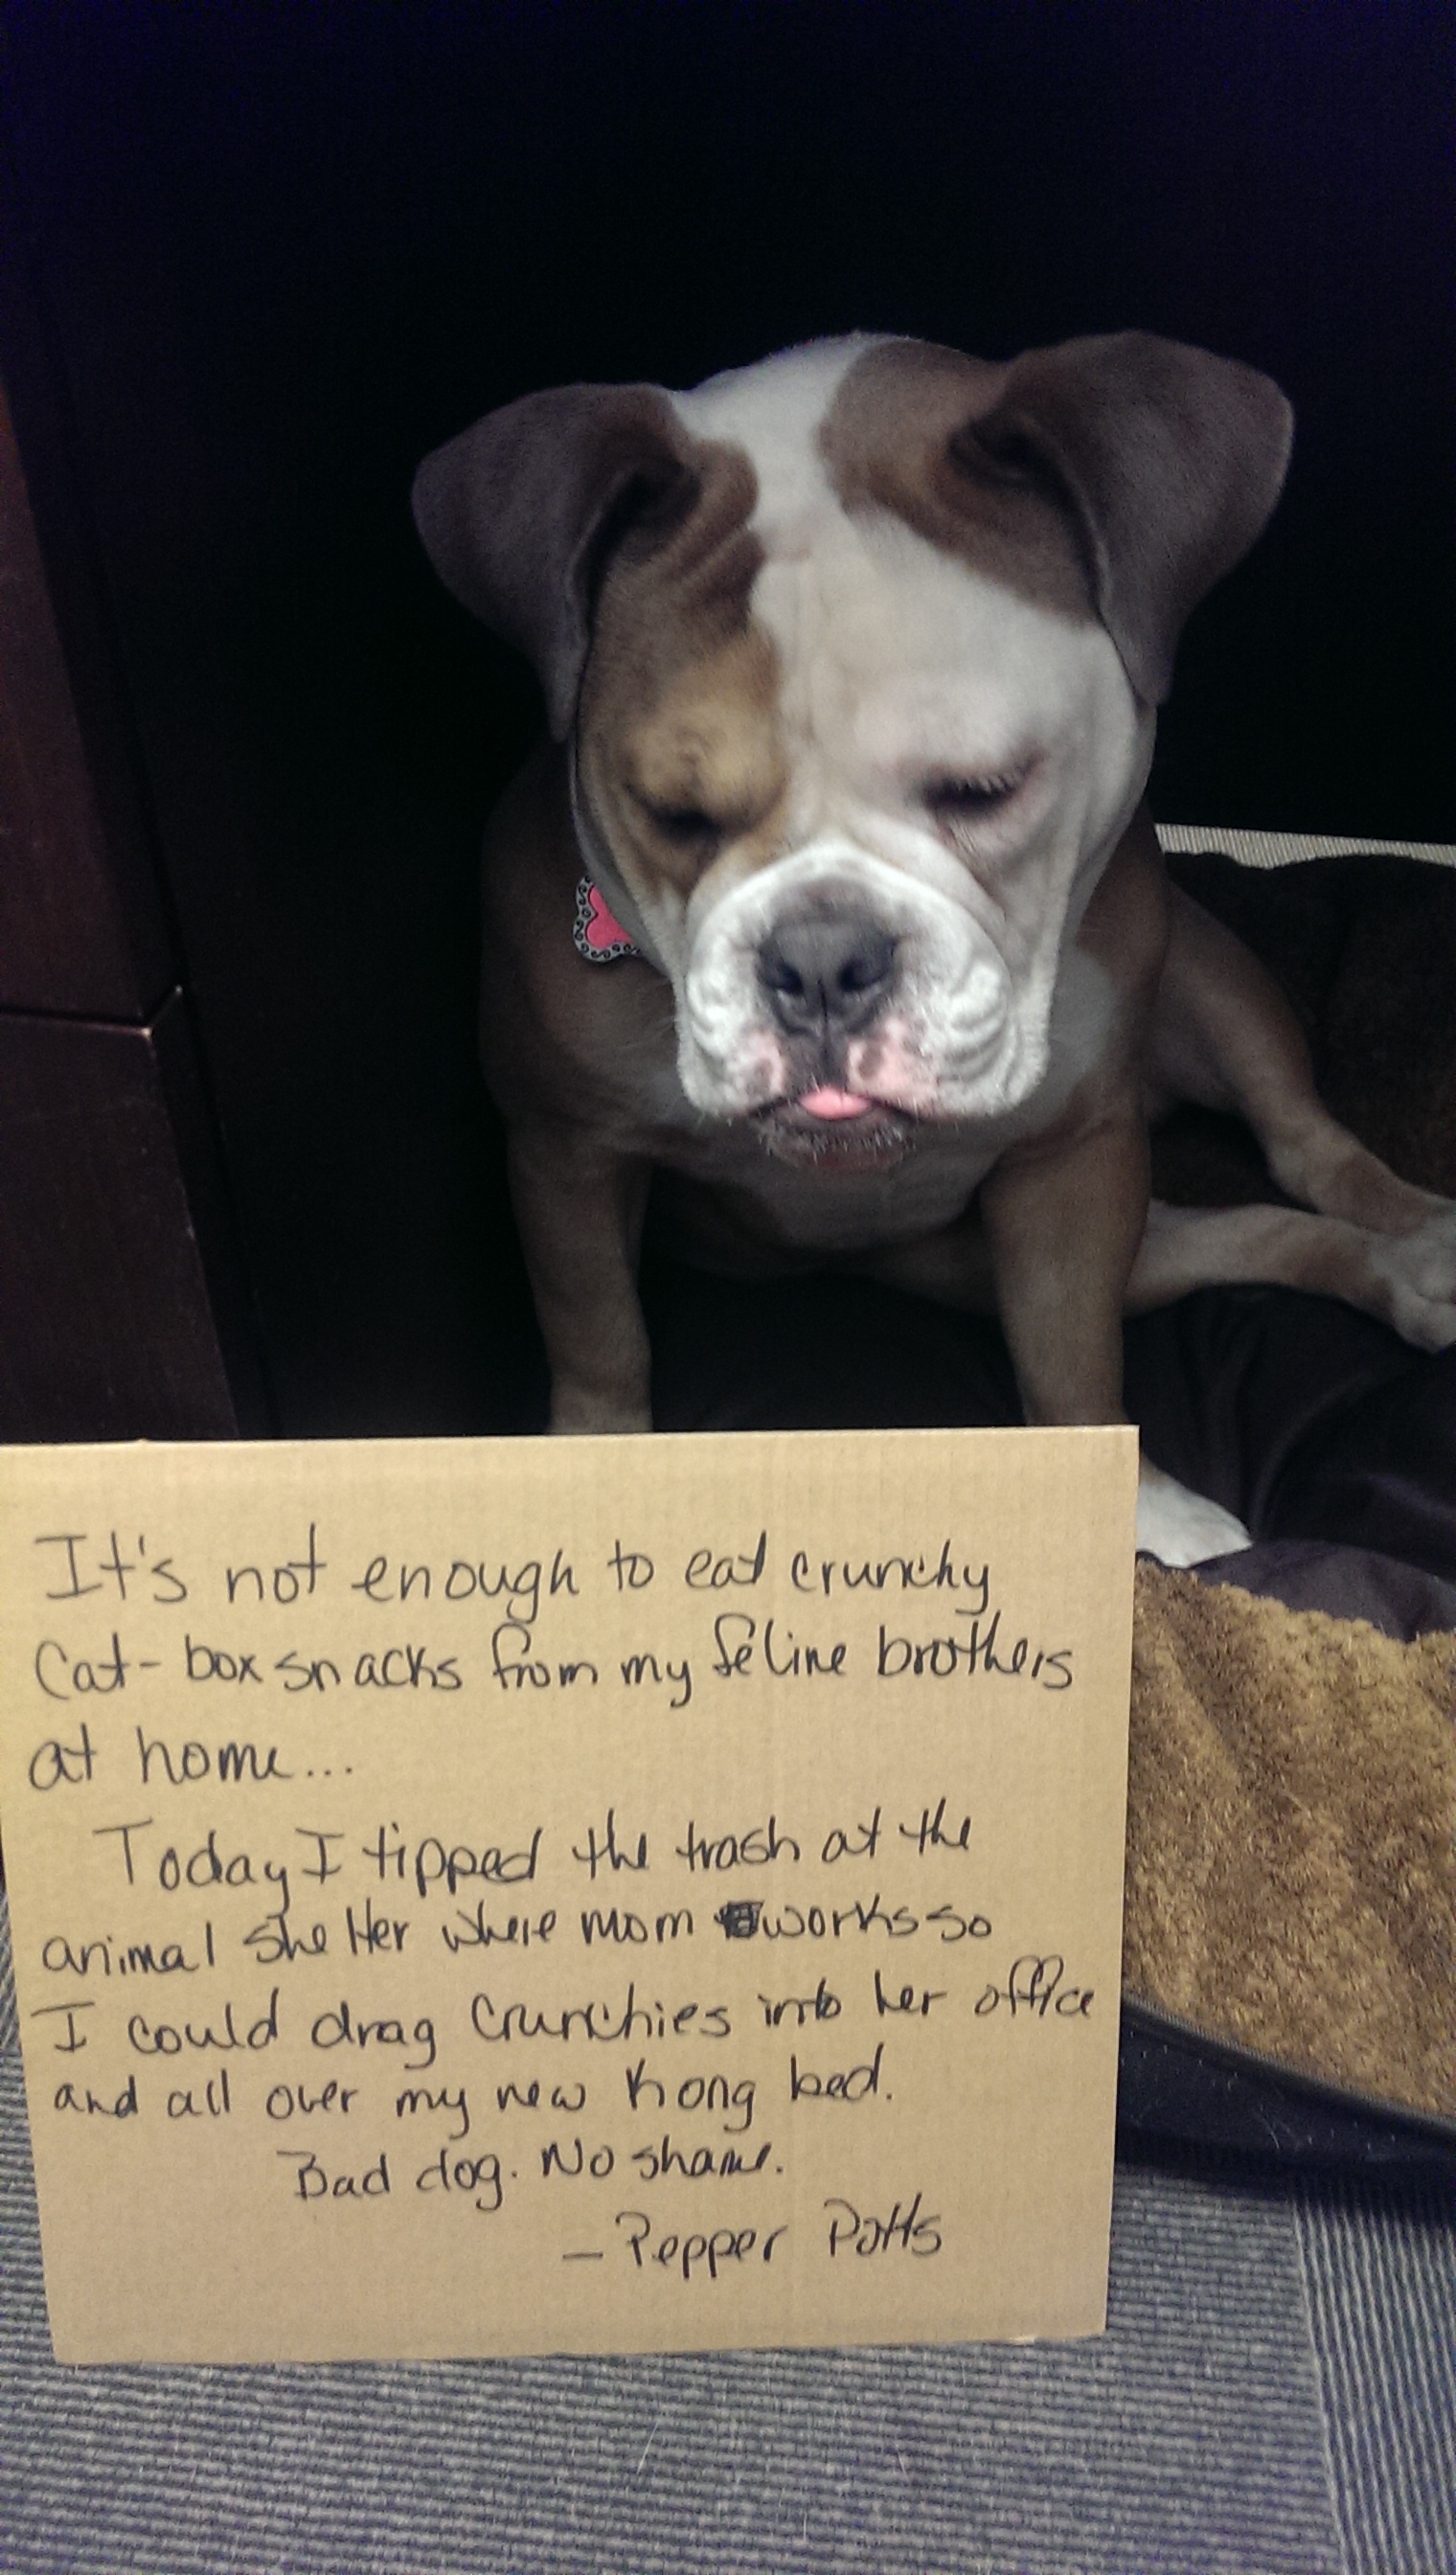 It's not enough to eat crunchy
Cat-box snacks from my feline brothers
at home...
Today I tipped the trash at the
animal shelter where mom works so
I could drag crunchies into her office
and all over my new Kong bed.
Bad dog. No shame.
- Pepper Potts